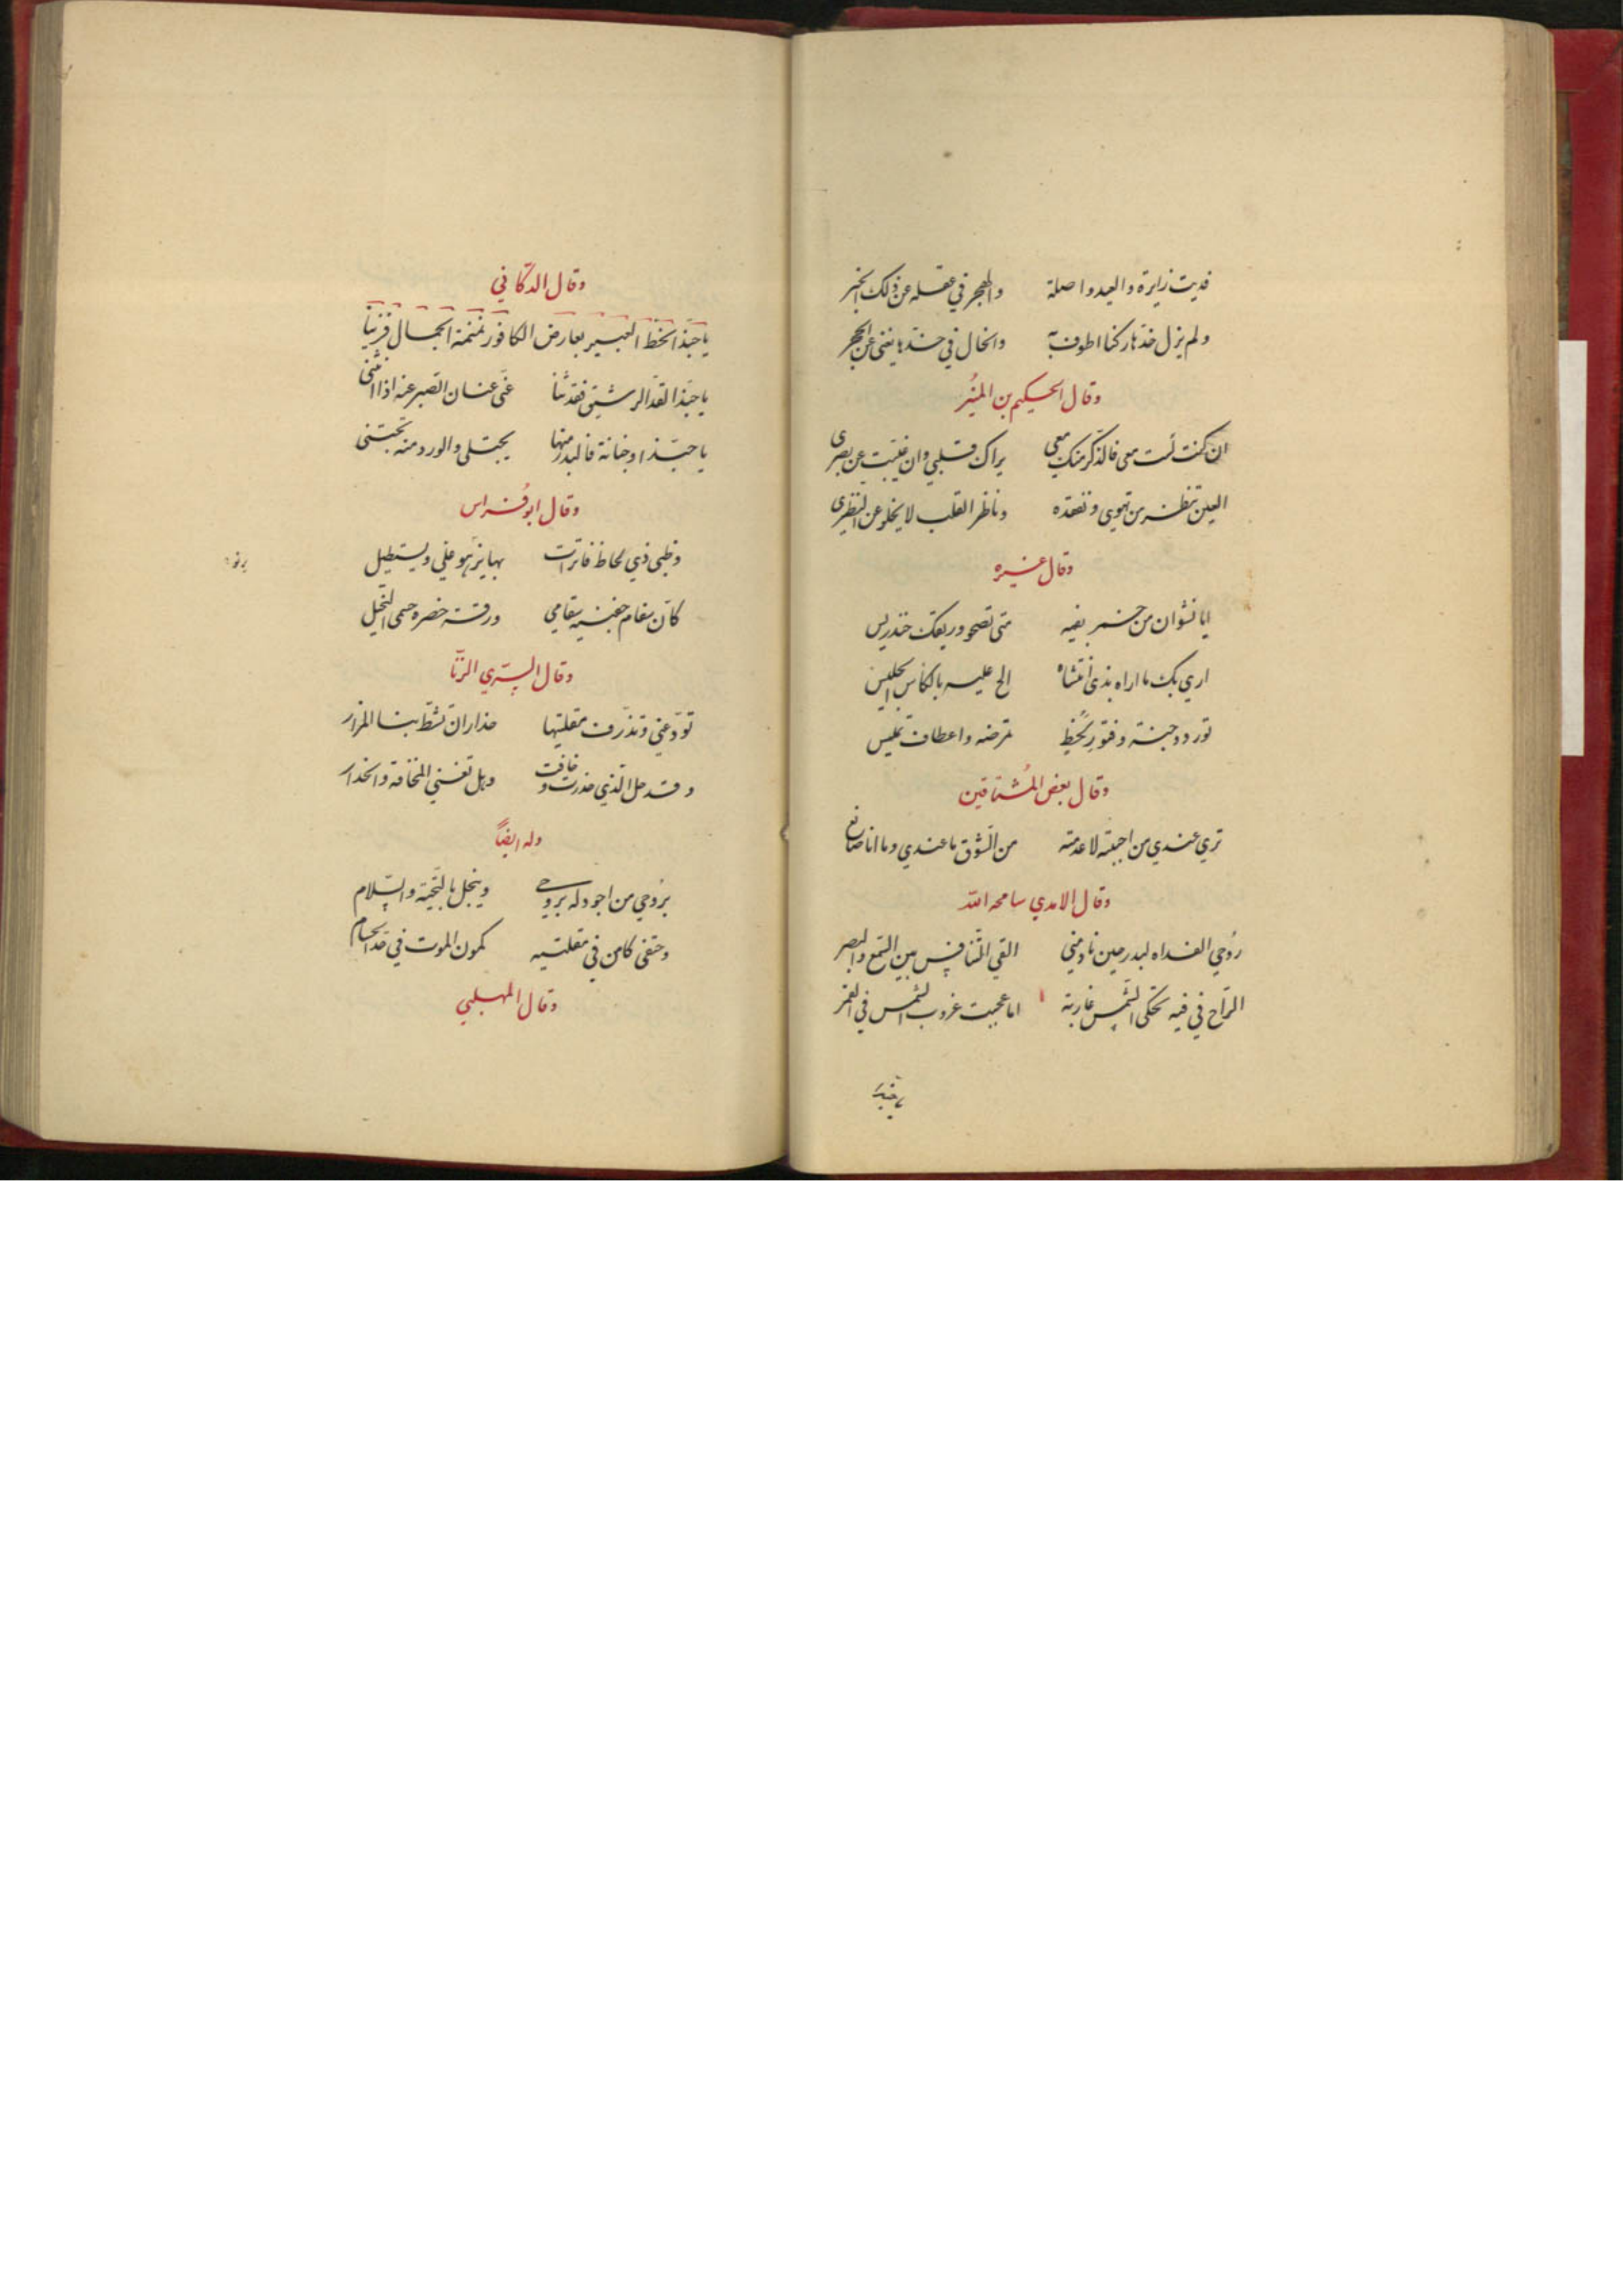 فديت زايرة والعيد واصلة والهجر في غفلة عن ذلك الخبر
ولم يزل خدّها ركنا اطوف به والخال في خدها يغني عن الحجر
وقال الحكيم بن المنيُر
ان كنت لست معي فالذّكر منك معي يراك قلبي وان غيبت عن بصرى
العين تنظر من تهوي وتفقده وناظر القلب لا يخلو عن النظرى
وقال غيره
ايا نشوان من خمر بفيه متى تصحو وريقك خندريس
اري بك ما اراه بذى انتشاه الح عليه بالكاس الجليس
تورد وجنة وفتور لحظ تمرضه واعطاف تميس
وقال بعض المُشتاقين
تري عندي من احبّته لا عدمته من الشّوق ما عندي وما انا صانع
وقال الامدي سامحه الله
رُوحي الفداه لبدر حين نادمني القي التّنافس بين السّمع والبصر
الرّاح في فيه تحكى الشّمس غاربة اما عجبت غروب الشمس في القمر
وقال الدكّافي
يا حبّذا الخطّ العبير بعارض الكافور نمنمة الجمال فزينا
يا حبّذا القدّ الرشيق فقد ثنا عنّى عنان الصبر عنه اذا انثنى
يا حبّذا وجناتة فالبدر منها يجتلى والورد منه تجتنى
وقال ابو فُراس
وظبي ذي لحاظ فاترات بها يزهو علي ويستطيل
كانّ سقام جفنيه سقامي ورقة خصره جسمي النحيل
وقال السّري الرفّا
تودّعني وتذرف مقلتيها حذار ان تشطّ بنا المزار
وقد حل الذي حذرت وخافت وهل تغني المخافة والحذار
وله ايضًا
برُوحي من اجود له بروحي ويبخل بالتّحيّة والسّلام
وحتفى كامن في مقلتيه كمون الموت في حّد الحسام
وقال المهلبي